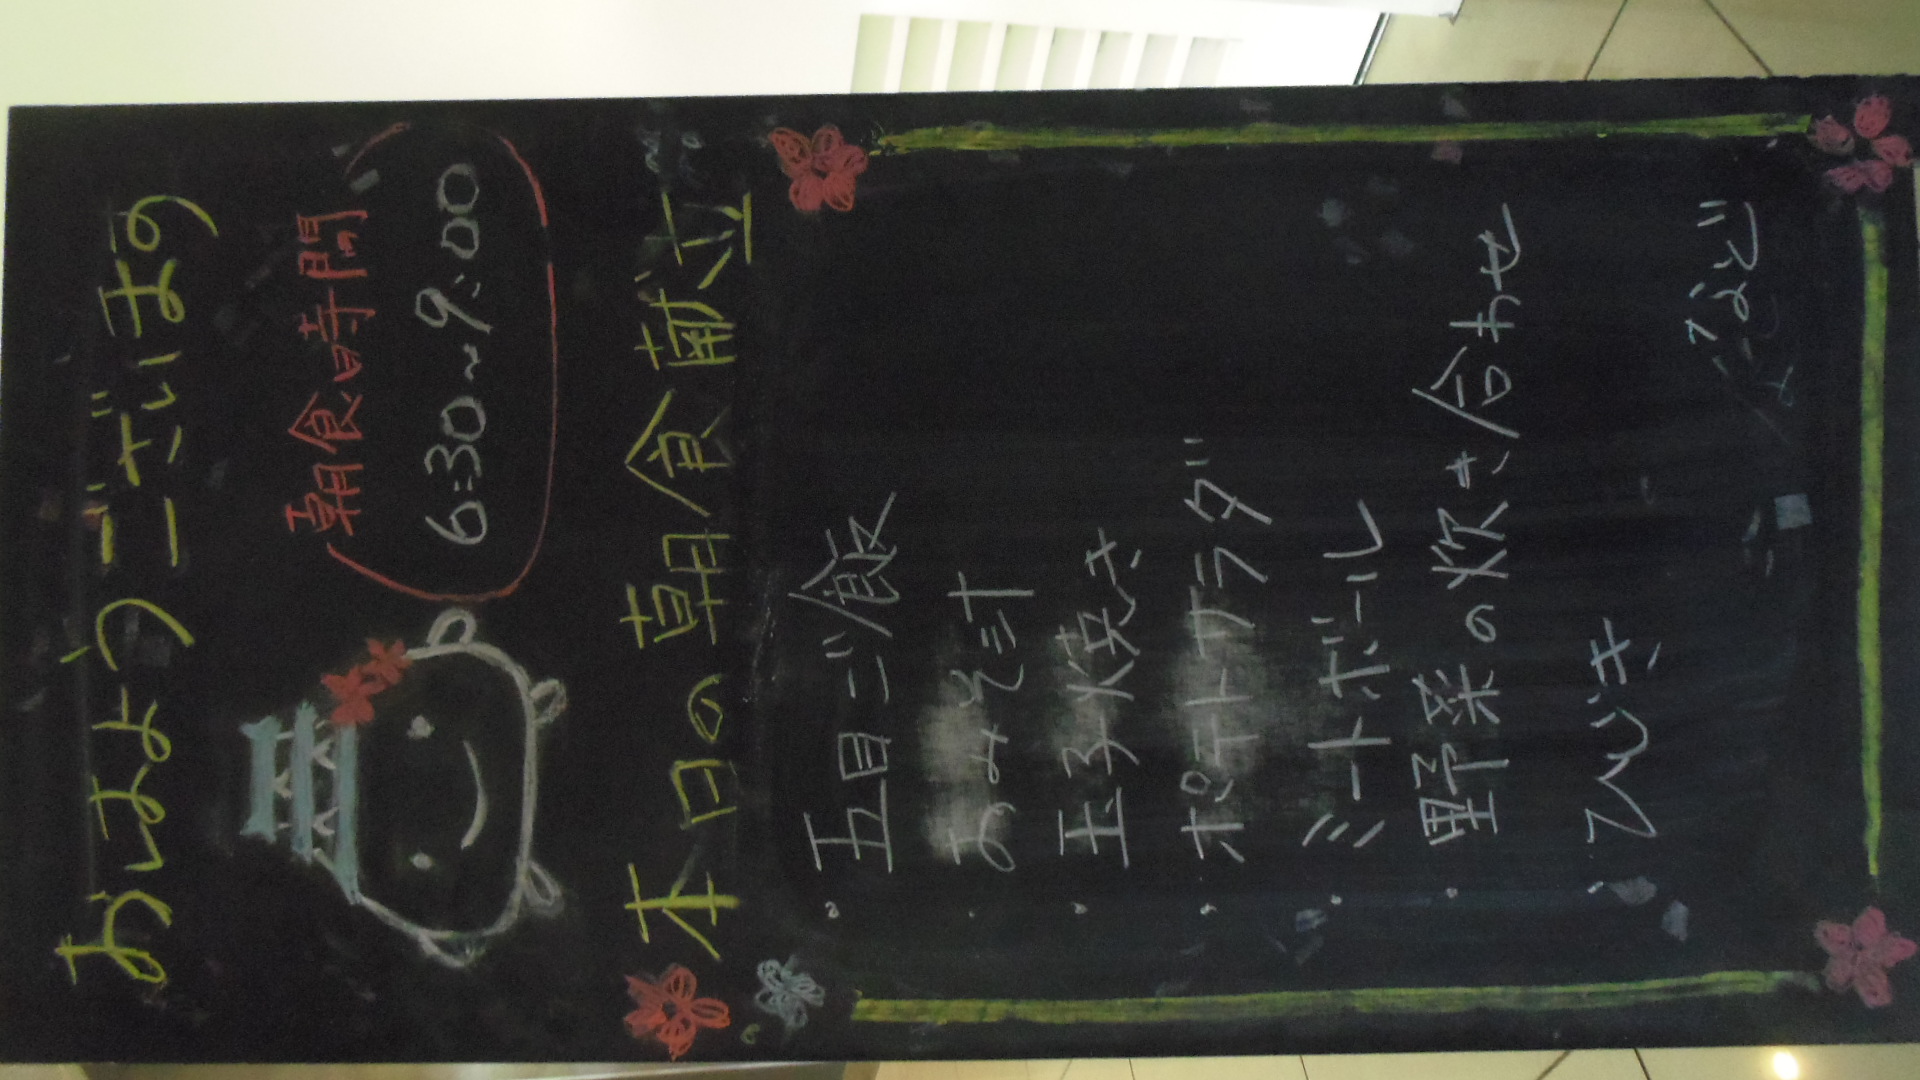 おはようございます
朝食時間
6:30~9:00
本日の朝食献立
・五目ご飯
・おみそ汁
・玉子焼き
・ポテトサラダ
・ミートボール
・野菜の炊き合わせ
・ひじき
など